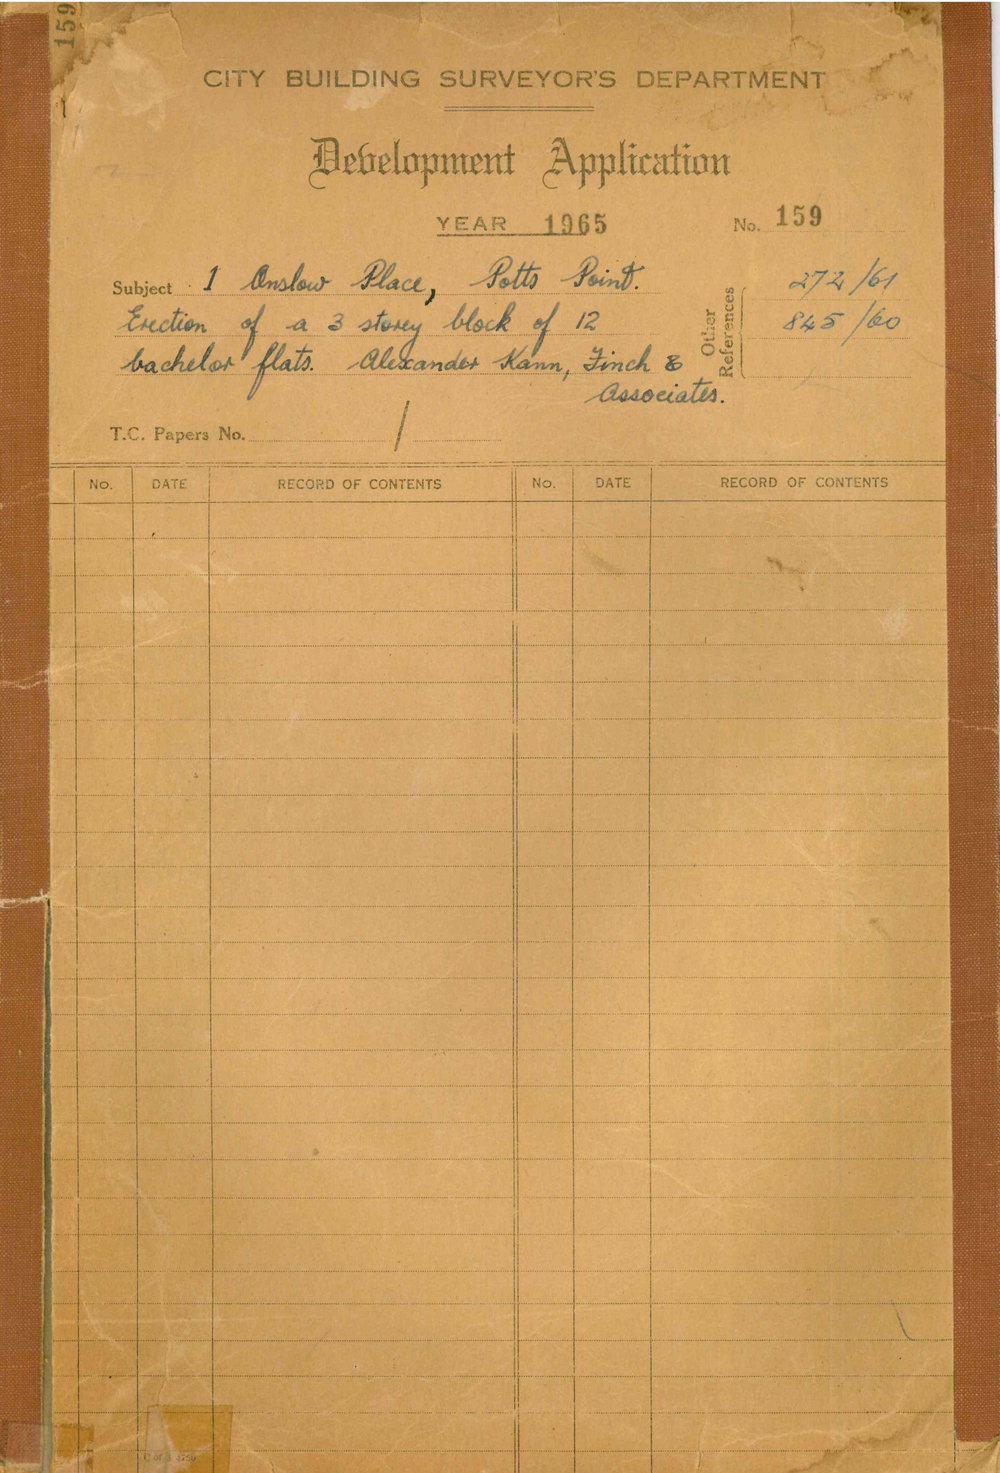 159
CITY BUILDING SURVEYOR'S DEPARTMENT
Development Application
YEAR 1965
No. 159
Subject 1 Onslow Place, Potts Point.
Erection of a 3 storey block of 12
bachelor flats. Alexander Kann, Finch &
Associates.
Other References
272/61
845/60
T.C. Papers No. /
No. DATE RECORD OF CONTENTS No. DATE RECORD OF CONTENTS